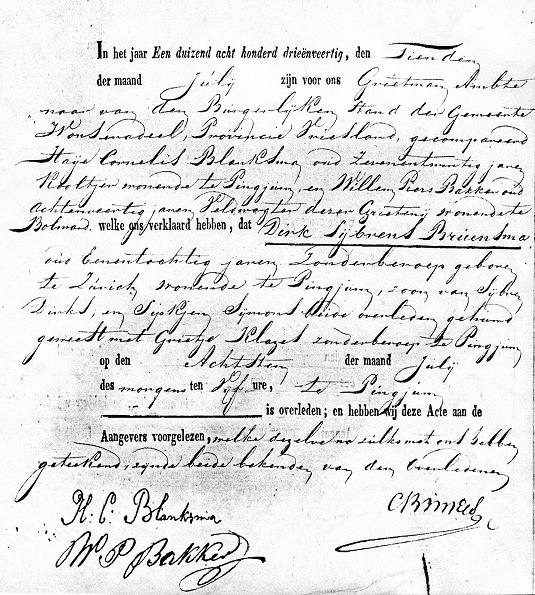 In het jaar Een duizend acht honderd drieënveertig, den Tienden
der maand Julij zijn voor ons Grietman Ambte
naar van den Burgerlijken Stand der Gemeente
Wonseradeel, Provincie Vriesland, gecompareerd
Cornelis Blanksma, oud Zevenentwintig jaren
wonende te Pingjum, en Willem Piers Bakker oud
achtenveertig jaren Veldwagter dezer Grietenij wonende te
Bolsward. welke ons verklaard hebben, dat Dirk Sijbrens Bruinsma
oud Eenentachtig jaren, Zonderberoep geboren
te Zurich, wonende te Pingjum, zoon van Sijbren
Dirks, en Sijtsken Sijmons beide overleden gehuwd
geweest met Grietje Klazes zonderberoep te Pingjum
op den Achtsten der maand Julij
des morgens ten Vijf ure, te Pingjum
is overleden; en hebben wij deze Acte aan de
Aangevers voorgelezen, welke dezelve na zulks met ons hebben
geteekend, zijnde beide bekenden van den overledenen
H. C. Blanksma
W. P. Bakker